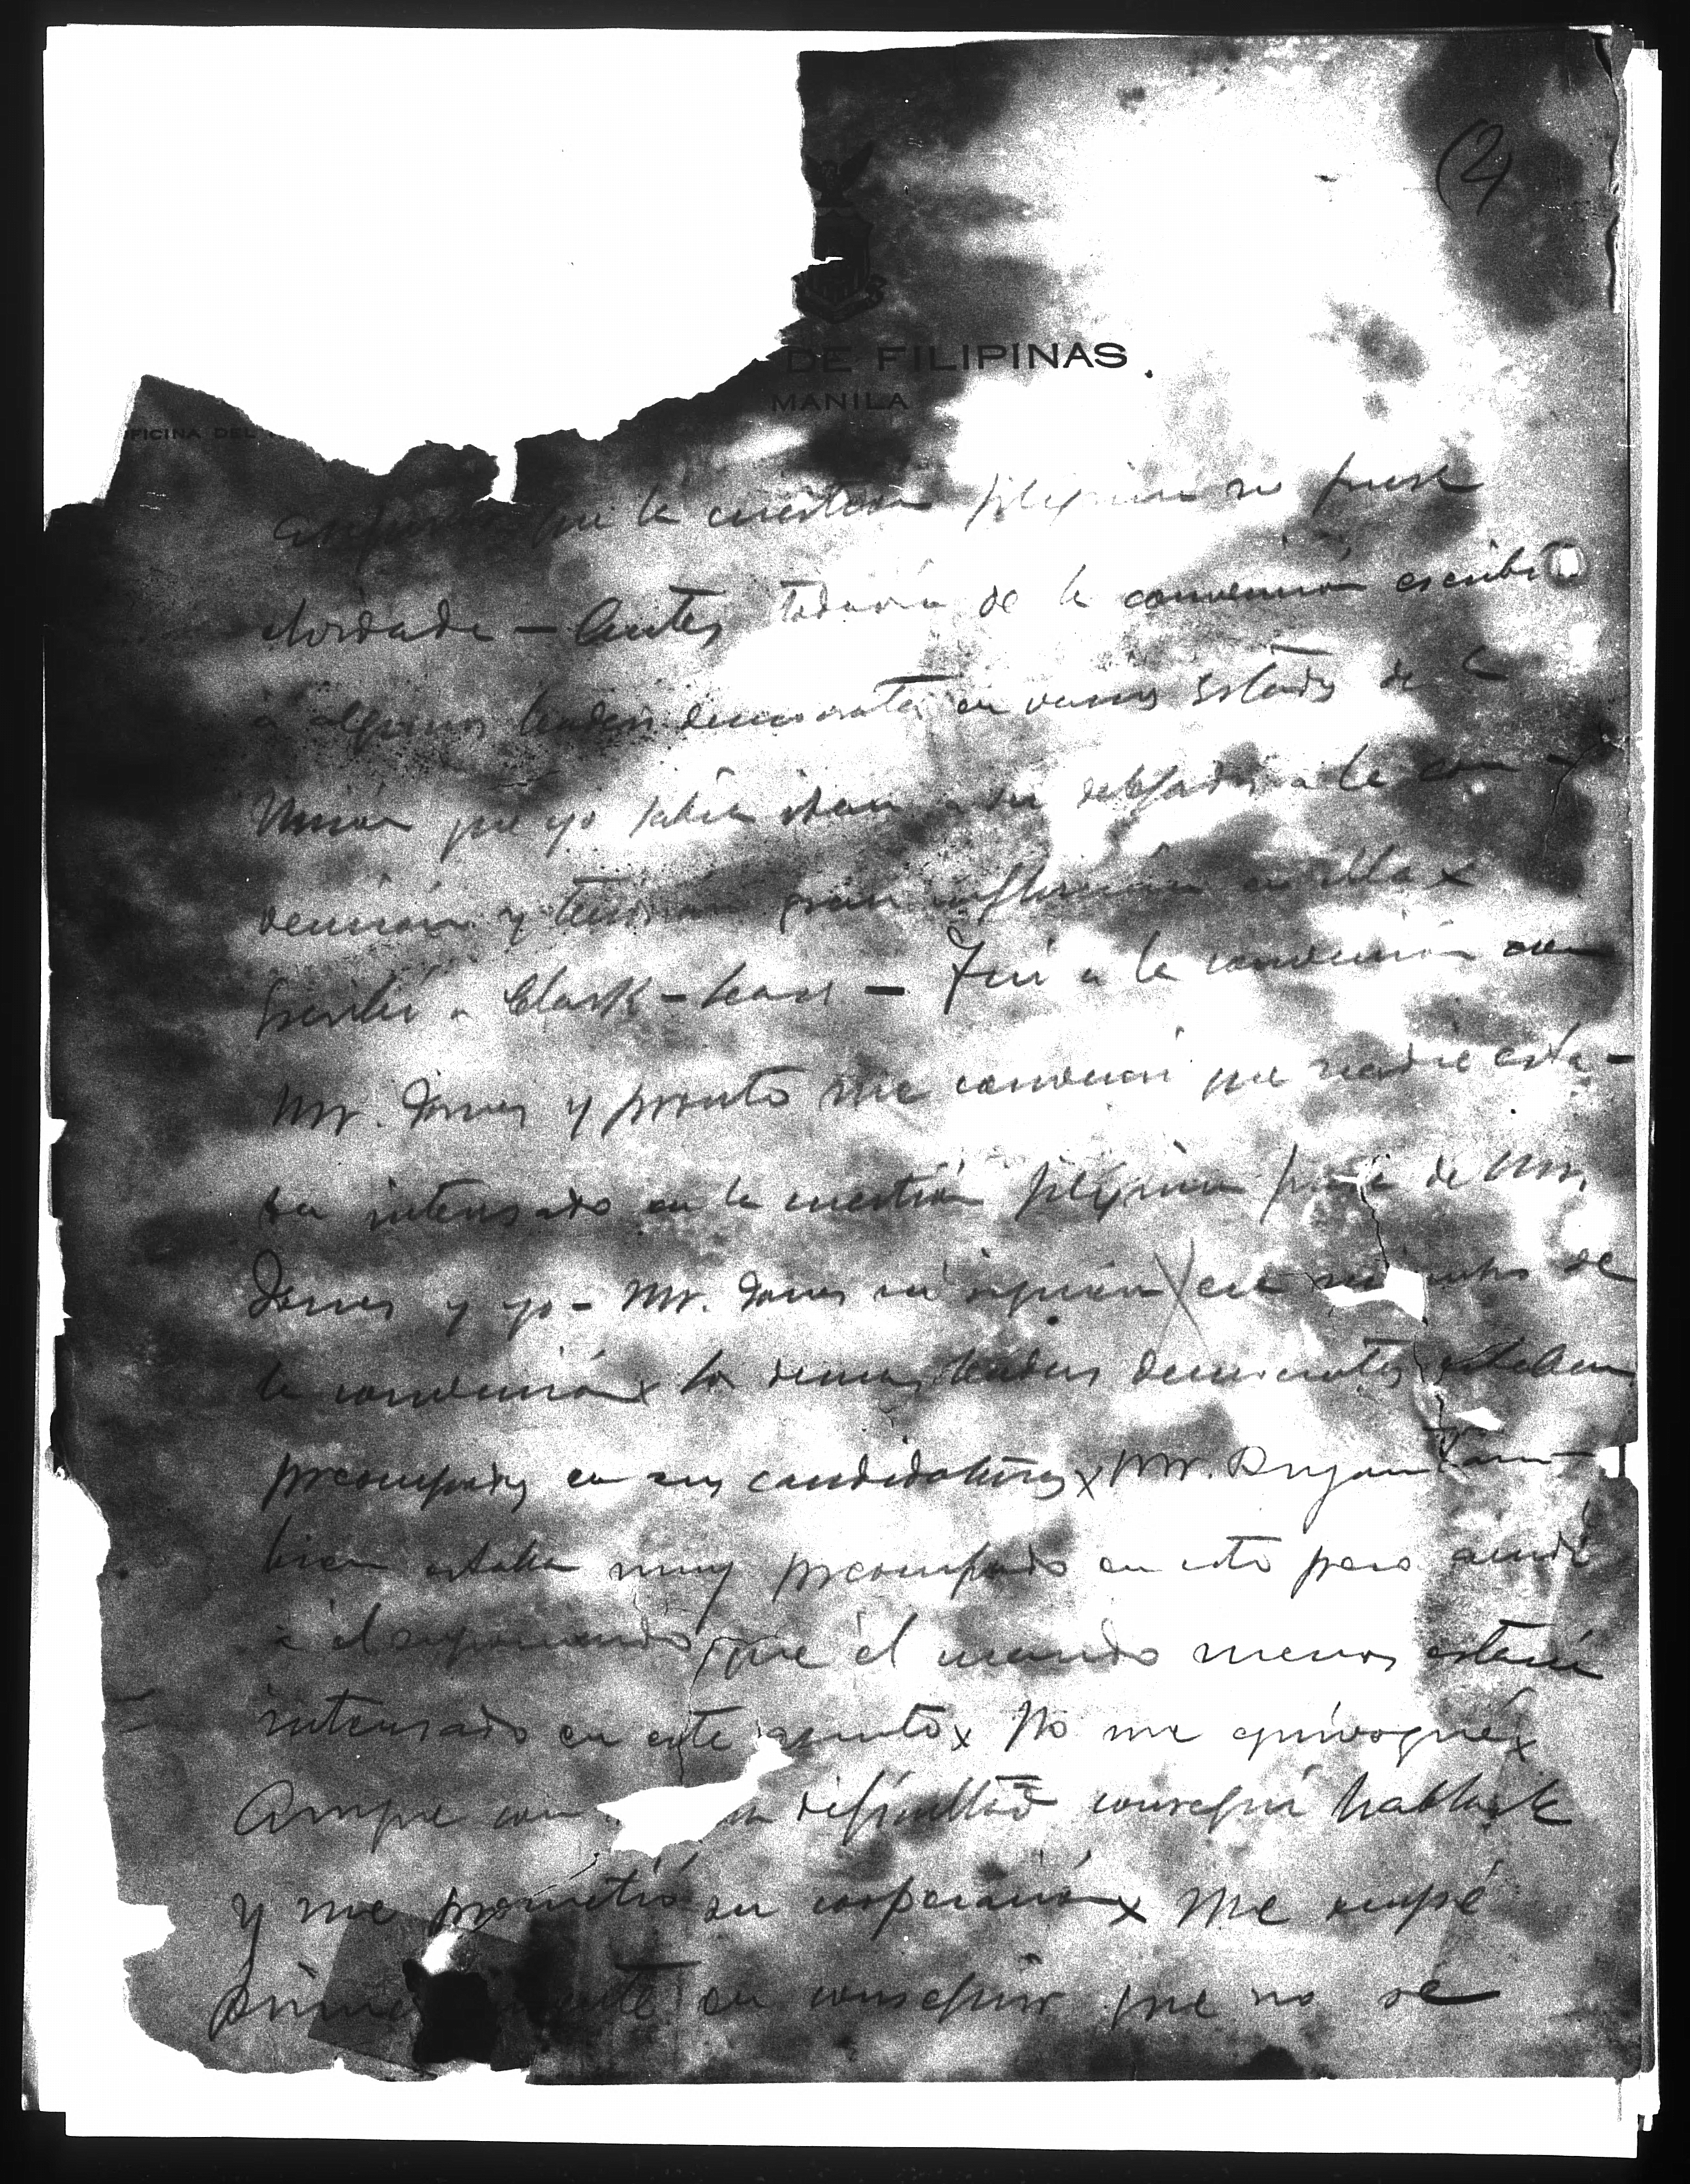 (2)
DE FILIPINAS
MANILA
OFICINA DEL
que la cuestion filipina no fuese
olvidada — Antes todavía de la convención escribí
á algunos leaders democratas en varios Estados de la
Unión que yo sabía iban a ser delegados a la con-
vención y tendrían gran influencia en ella x
Escribí a Clark — Fuí a la convención con
Mr. Jones y pronto me convencí que nadie esta-
ba interesado en la cuestión filipina fuera de Mr.
Jones y yo - Mr. Jones ni siquiera en de
la convención x Los demas leaders democratas estaban
preocupados en sus candidaturas x Mr. Bryan tam-
bien estaba muy preocupado en esto pero acudí
á él suponiendo que él cuando menos estaría
interesado en este asunto x No me equivoqué x
Aunque con dificultad conseguí hablarle
y me prometió su cooperación x Me ocupé
en conseguir que no se